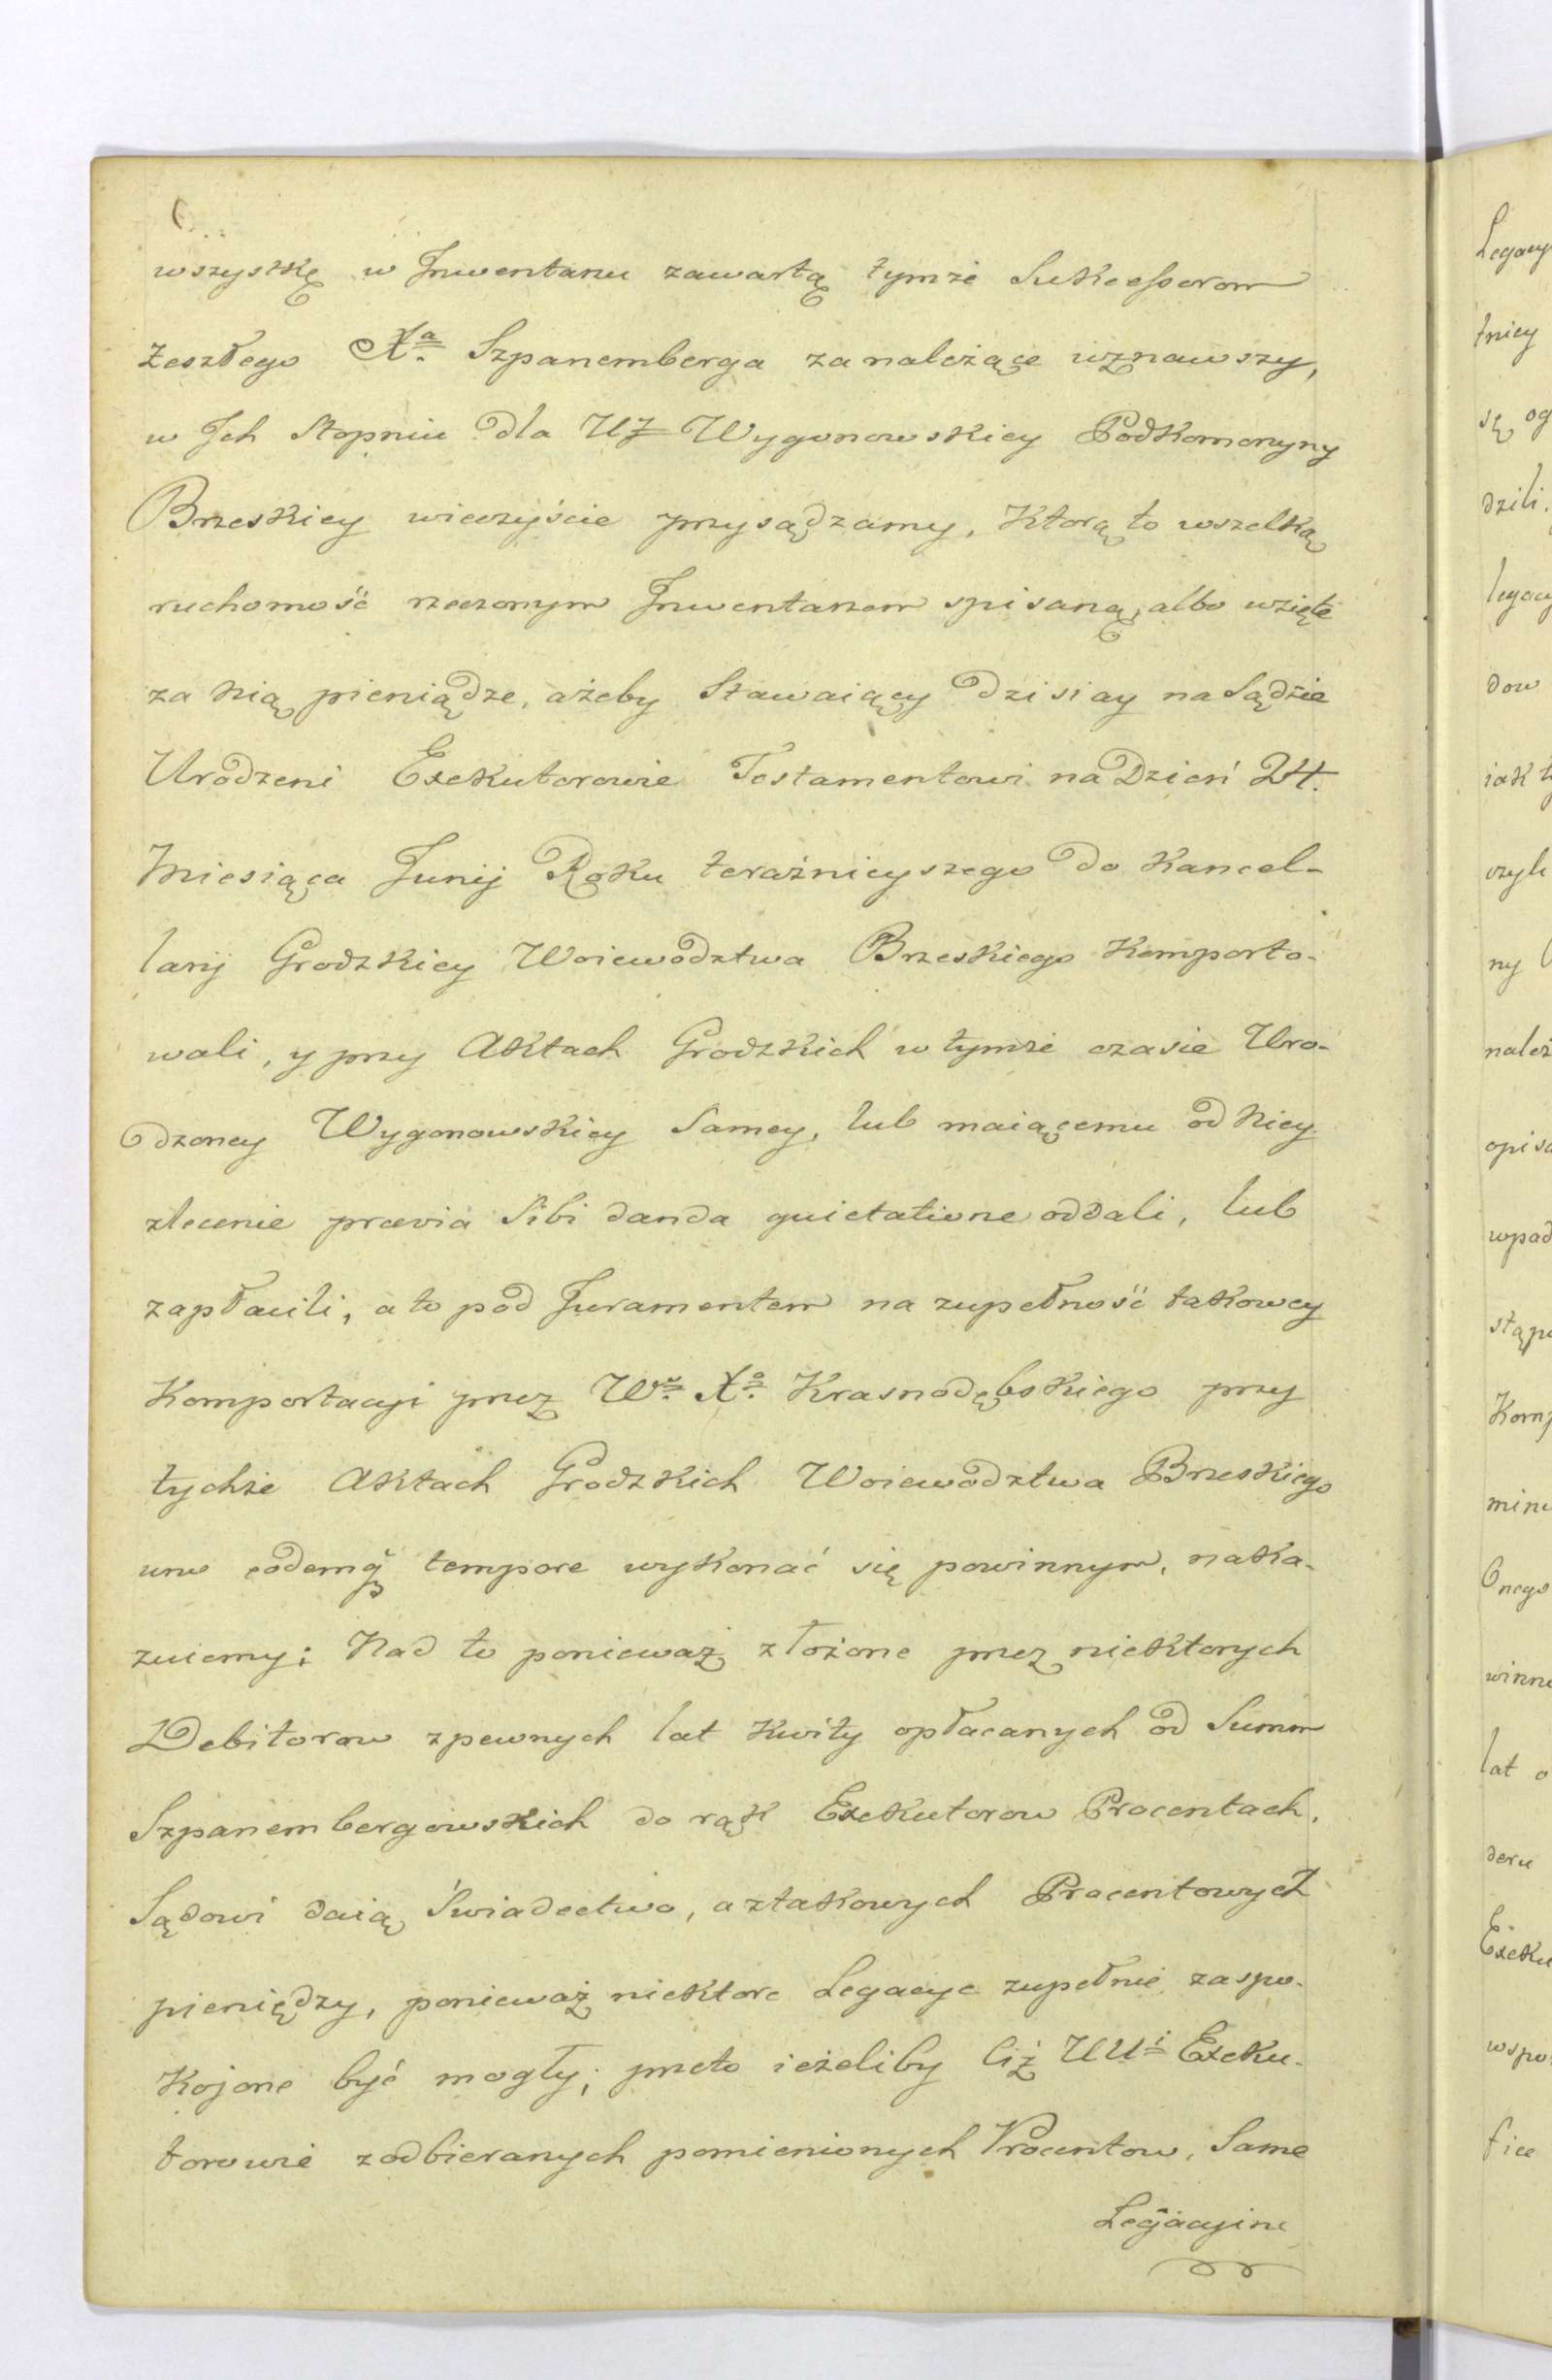 wszystkę w Inwentarzu zawartą tymże Sukcessorom
zeszłego Xa. Szpanemberga za należące uznawszy,
w Ich Stopniu dla UJ Wygonowskiey Podkomorzyny
Brzeskiey wieczyście przysądzamy, ktorą to wszelką
ruchomość rzeczonym Inwentarzem spisaną, albo wzięte
za nią pieniądze, ażeby Stawaiący dzisiay na Sądzie
Urodzeni Exekutorowie Testamentowi na Dzień 24.
Miesiąca Junij Roku teraźnieyszego do Kancel-
laryi Grodzkiey Woiewodztwa Brzeskiego komporto-
wali, y przy Aktach Grodzkich w tymże czasie Uro-
dzoney Wygonowskiey Samey, lub maiącemu od Niey
zlecenie prævia Sibi danda quietatione oddali, lub
zapłacili, a to pod Juramentem na zupełność takowey
Komportacyi przez Wo. Xo. Krasnodębskiego przy
tychże Aktach Grodzkich Woiewodztwa Brzeskiego
uno eodemq̃ tempore wykonać się powinnym, naka-
zuiemy; Nad to ponieważ złożone przez niektorych
Debitorow z pewnych lat kwity opłacanych od Summ
Szpanembergowskich do rąk Exekutorow Procentach,
Sądowi daią Świadectwo, a z takowych Procentowych
pieniędzy, ponieważ niektore Legacye zupełnie zaspo-
kojone być mogły; przeto ieżeliby Ciż UUi Exeku-
torowie z odbieranych pomienionych Procentow, Same
Legacyine
Legacy
tniey
się og
dzili,
legacy
dow
iak t
czyli
ny
należ
opisa
wpad
stąp
Komp
minu
Onego
winn
lat o
deru
Exeku
wspo
fice